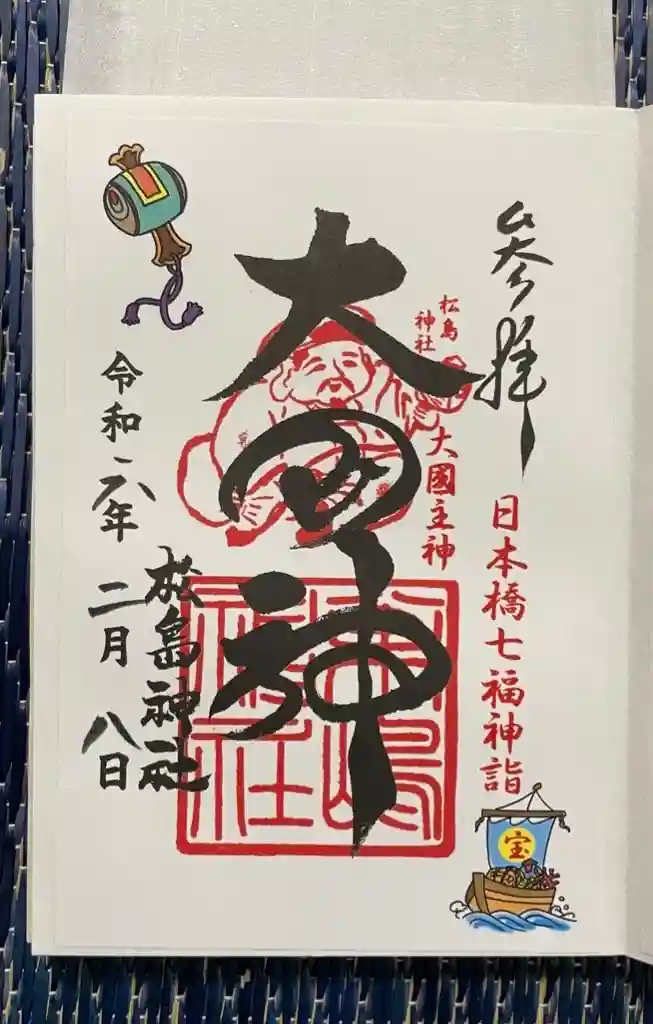 参拝
日本橋七福神詣
松島
神社
大國主神
大国神
松嶋
神社
松島神社
令和六年
二月
八日
宝